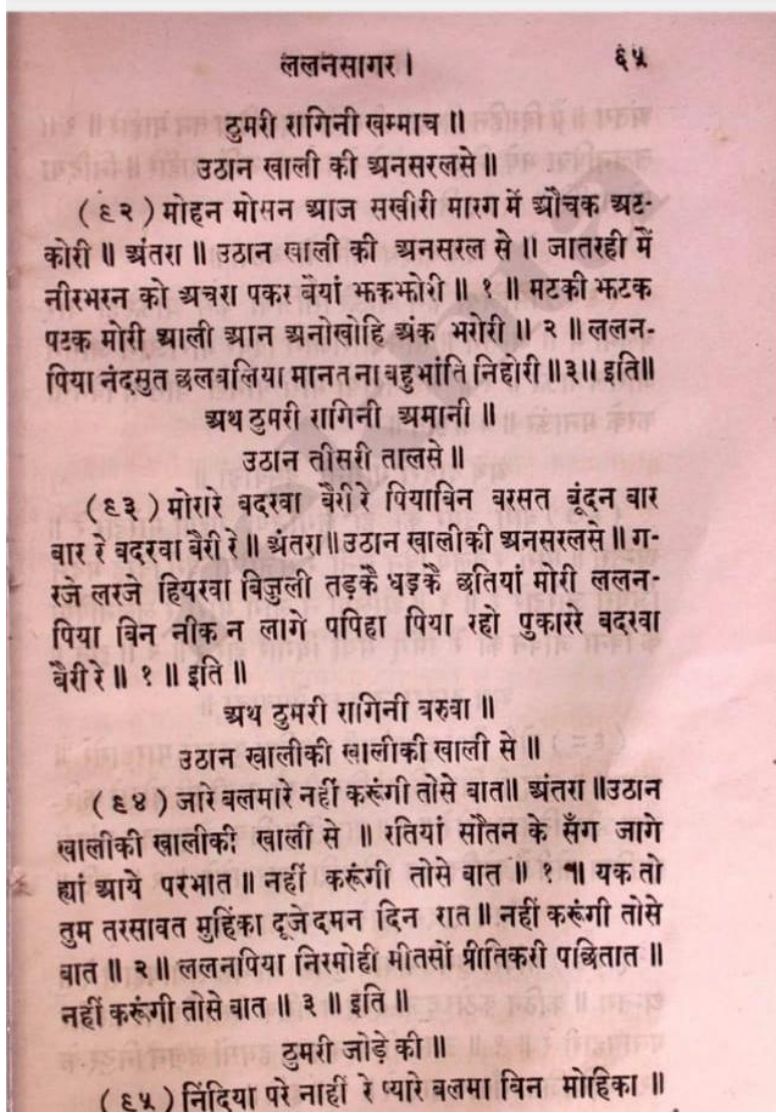 ललनसागर। ६५
ठुमरी रागिनी खम्माच॥
उठान खाली की अनसरलसे॥
(९२) मोहन मोसन आज सखीरी मारग में औचक अट-
कोरी॥ अंतरा॥ उठान खाली की अनसरल से॥ जातरही में
नीरभरन को अचरा पकर बैयां झकझोरी॥ १॥ मटकी झटक
पटक मोरी आली आन अनोखोहि अंक भरोरी॥ २॥ ललन-
पिया नंदसुत छलबलिया मानत ना बहुभांति निहोरी॥३॥ इति॥
अथ ठुमरी रागिनी अमानी॥
उठान तीसरी तालसे॥
(९३) मोरारे बदरवा बैरी रे पियाबिन बरसत बूंदन बार
बार रे बदरवा बैरी रे॥ अंतरा॥उठान खालीकी अनसरलसे॥ ग-
रजे लरजे हियरवा बिजुली तड़कै धड़कै छतियां मोरी ललन-
पिया बिन नीक न लागे पपिहा पिया रहो पुकाररे बदरवा
बैरी रे॥ १॥ इति॥
अथ ठुमरी रागिनी बरुवा॥
उठान खालीकी खालीकी खाली से॥
(९४) जारे बलमारे नहीं करूंगी तोसे बात॥ अंतरा॥उठान
खालीकी खालीकी खाली से॥ रतियां सौतन के सँग जागे
ह्यां आये परभात॥ नहीं करूंगी तोसे बात॥ १॥ यक तो
तुम तरसावत मुहिंका दूजे दमन दिन रात॥ नहीं करूंगी तोसे
बात॥ २॥ ललनपिया निरमोही मीतसों प्रीतिकरी पछितात॥
नहीं करूंगी तोसे बात॥ ३॥ इति॥
ठुमरी जोड़े की॥
(९५) निंदिया परे नाहीं रे प्यारे बलमा बिन मोहिका॥